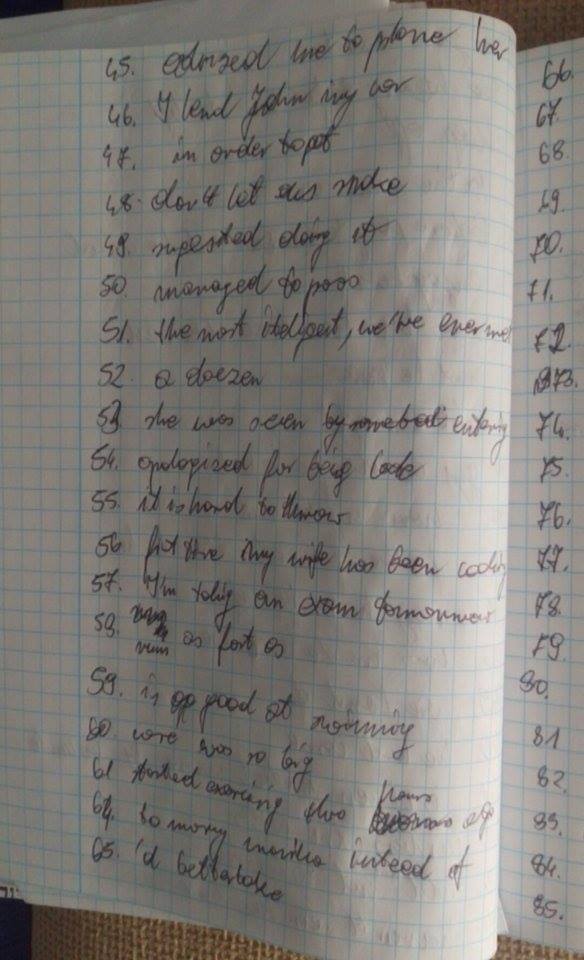 45. advised me to phone her
46. I lend John my car
47. in order to pot
48. don't let his
49. sugested doing it
50. managed to pass
51. the most , we've ever met
52. a doezen
53. she was seen by entering
54. apologized for being late
55. it is hard to throw
56. first time my wife has been cooking
57. I'm taking an exam
58. run as fast as
59. is good at
60. were was so big
61. started two hours ago
64. to many instead of
65. 'd better take
66.
67.
68.
69.
70.
71.
72.
73.
74.
75.
76.
77.
78.
79.
80.
81
82.
83.
84.
85.